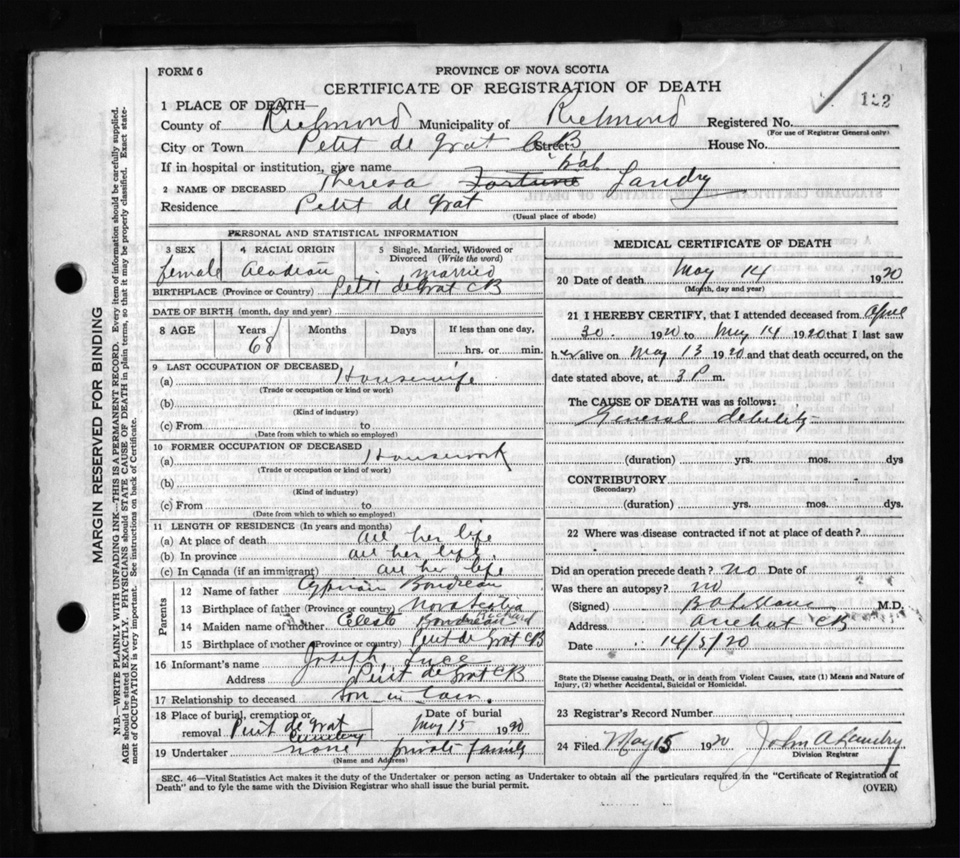 FORM 6
PROVINCE OF NOVA SCOTIA
CERTIFICATE OF REGISTRATION OF DEATH
122
1 PLACE OF DEATH—
County of Richmond Municipality of Richmond Registered No.
(For use of Registrar General only)
City or Town Petit de Grat CB Street: House No.
If in hospital or institution, give name
2 NAME OF DECEASED Theresa Fortune Landry
Residence Petit de Grat
(Usual place of abode)
PERSONAL AND STATISTICAL INFORMATION
3 SEX 4 RACIAL ORIGIN 5 Single, Married, Widowed or Divorced (Write the word)
female Acadian married
BIRTHPLACE (Province or Country) Petit de Grat CB
DATE OF BIRTH (month, day and year)
8 AGE Years Months Days If less than one day,
68 hrs. or min.
9 LAST OCCUPATION OF DECEASED
(a) Housewife
(Trade or occupation or kind of work)
(b)
(Kind of industry)
(c) From to
(Date from which to which so employed)
10 FORMER OCCUPATION OF DECEASED
(a) Housework
(Trade or occupation or kind of work)
(b)
(Kind of industry)
(c) From to
(Date from which to which so employed)
11 LENGTH OF RESIDENCE (In years and months)
(a) At place of death all her life
(b) In province all her life.
(c) In Canada (if an immigrant) all her life
Parents
12 Name of father Cyprian Boudreau
13 Birthplace of father (Province or country) Nova Scotia
14 Maiden name of mother Celeste Boudreau
15 Birthplace of mother (Province or country) Petit de Grat CB
16 Informant's name Joseph Luce
Address Petit de Grat CB
17 Relationship to deceased son in law.
18 Place of burial, cremation or removal Petit de Grat Cemetery Date of burial May 15 1920
19 Undertaker none private family
(Name and Address)
MEDICAL CERTIFICATE OF DEATH
20 Date of death May 14 1920
(Month, day and year)
21 I HEREBY CERTIFY, that I attended deceased from April
30. 1920 to May 14 1920 that I last saw
her alive on May 13 1920 and that death occurred, on the
date stated above, at 3 P m.
The CAUSE OF DEATH was as follows:
General debility
(duration) yrs. mos. dys
CONTRIBUTORY
(Secondary)
(duration) yrs. mos. dys.
22 Where was disease contracted if not at place of death?
Did an operation precede death? no Date of
Was there an autopsy? no
(Signed) M.D.
Address Arichat CB
Date 14/5/20
State the Disease causing Death, or in death from Violent Causes, state (1) Means and Nature of
Injury, (2) whether Accidental, Suicidal or Homicidal.
23 Registrar's Record Number
24 Filed May 15 1920 John A Landry
Division Registrar
SEC. 46—Vital Statistics Act makes it the duty of the Undertaker or person acting as Undertaker to obtain all the particulars required in the "Certificate of Registration of
Death" and to fyle the same with the Division Registrar who shall issue the burial permit.
(OVER)
MARGIN RESERVED FOR BINDING
N.B.—WRITE PLAINLY WITH UNFADING INK—THIS IS A PERMANENT RECORD. Every item of information should be carefully supplied.
AGE should be stated EXACTLY. PHYSICIANS should STATE CAUSE OF DEATH in plain terms, so that it may be properly classified. Exact state-
ment of OCCUPATION is very important. See instructions on back of Certificate.